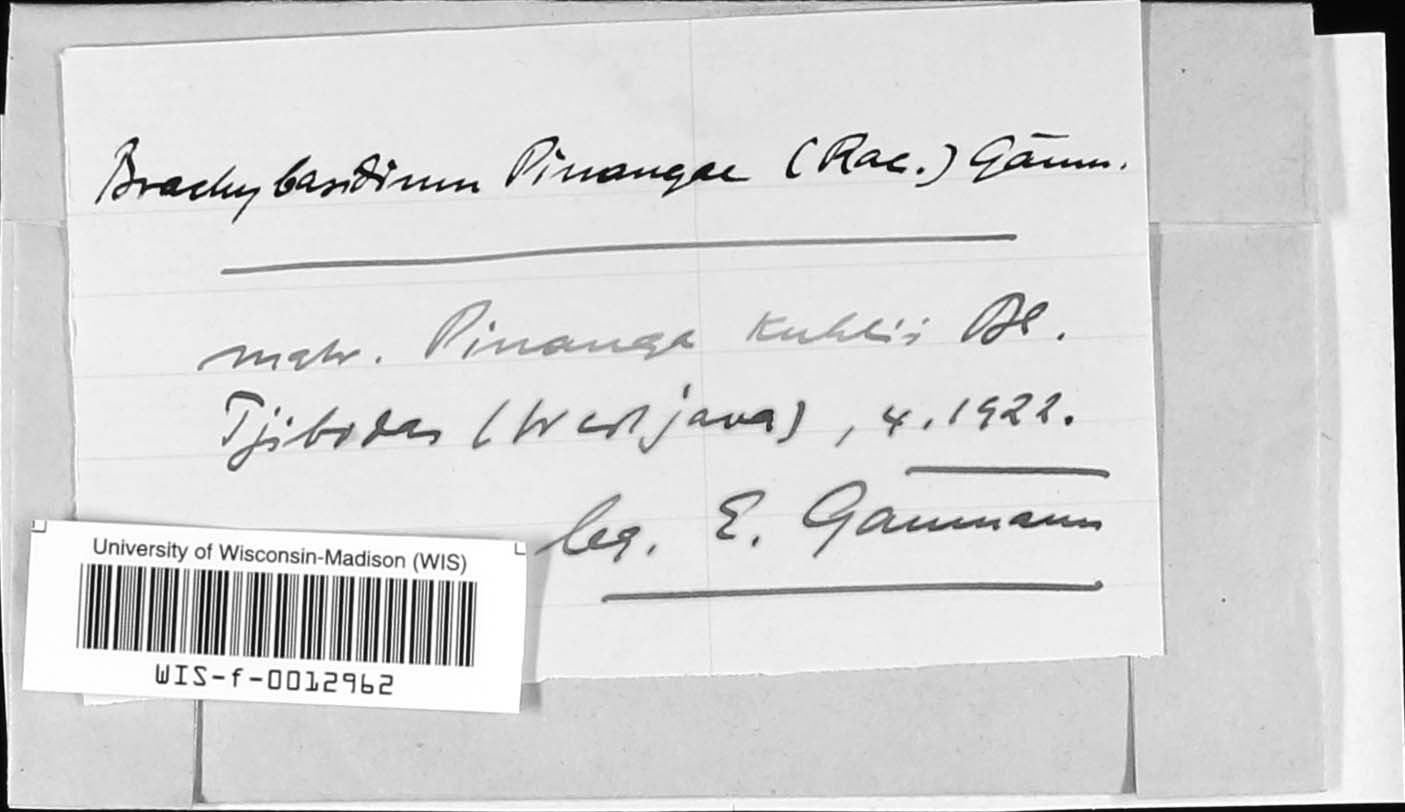 Brachybasidium Pinangae (Rac.) Gäum.
matr. Pinanga Kuhlii Bl.
Tjibodas (West java), 4. 1922.
leg. E. Gäumann
University of Wisconsin-Madison (WIS)
WIS-f-0012962